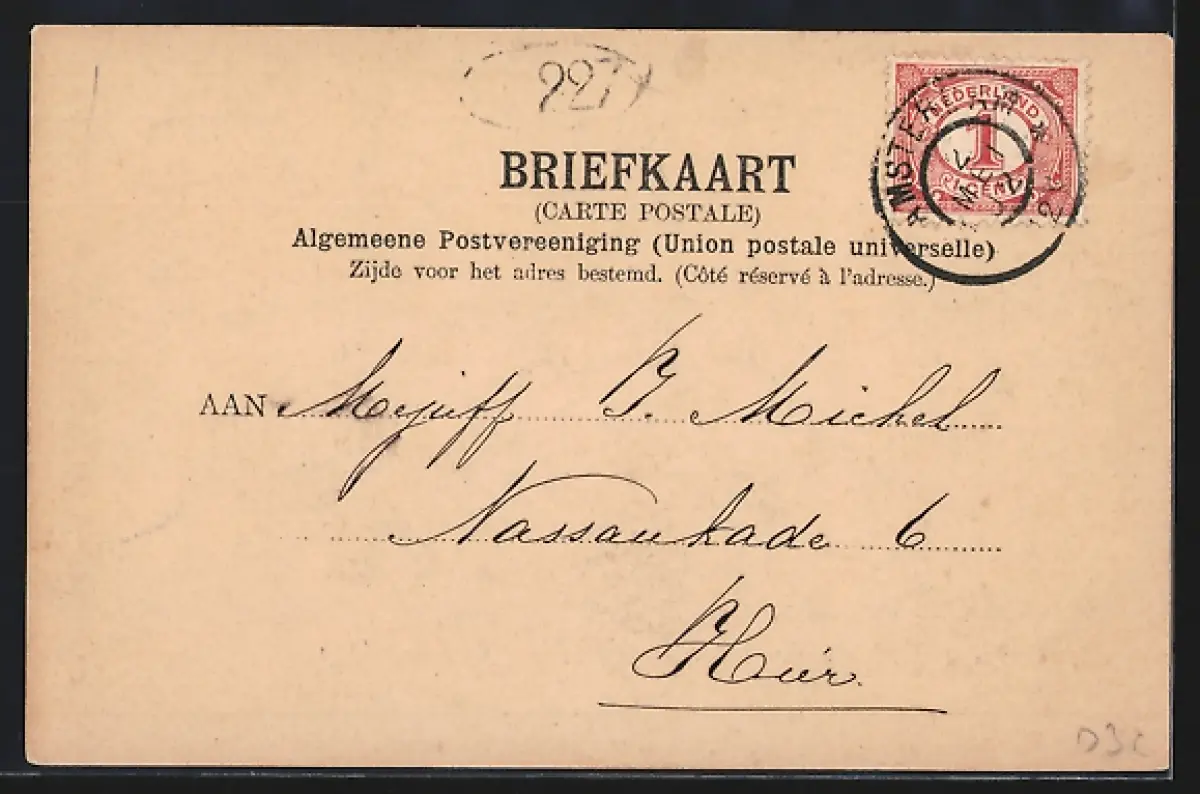 227
BRIEFKAART
(CARTE POSTALE)
Algemeene Postvereeniging (Union postale universelle)
Zijde voor het adres bestemd. (Côté réservé à l'adresse.)
NEDERLAND
1
CENT
AMSTERDAM
AAN Mejuff J. Michel
Nassaukade 6
Hier.
D3C